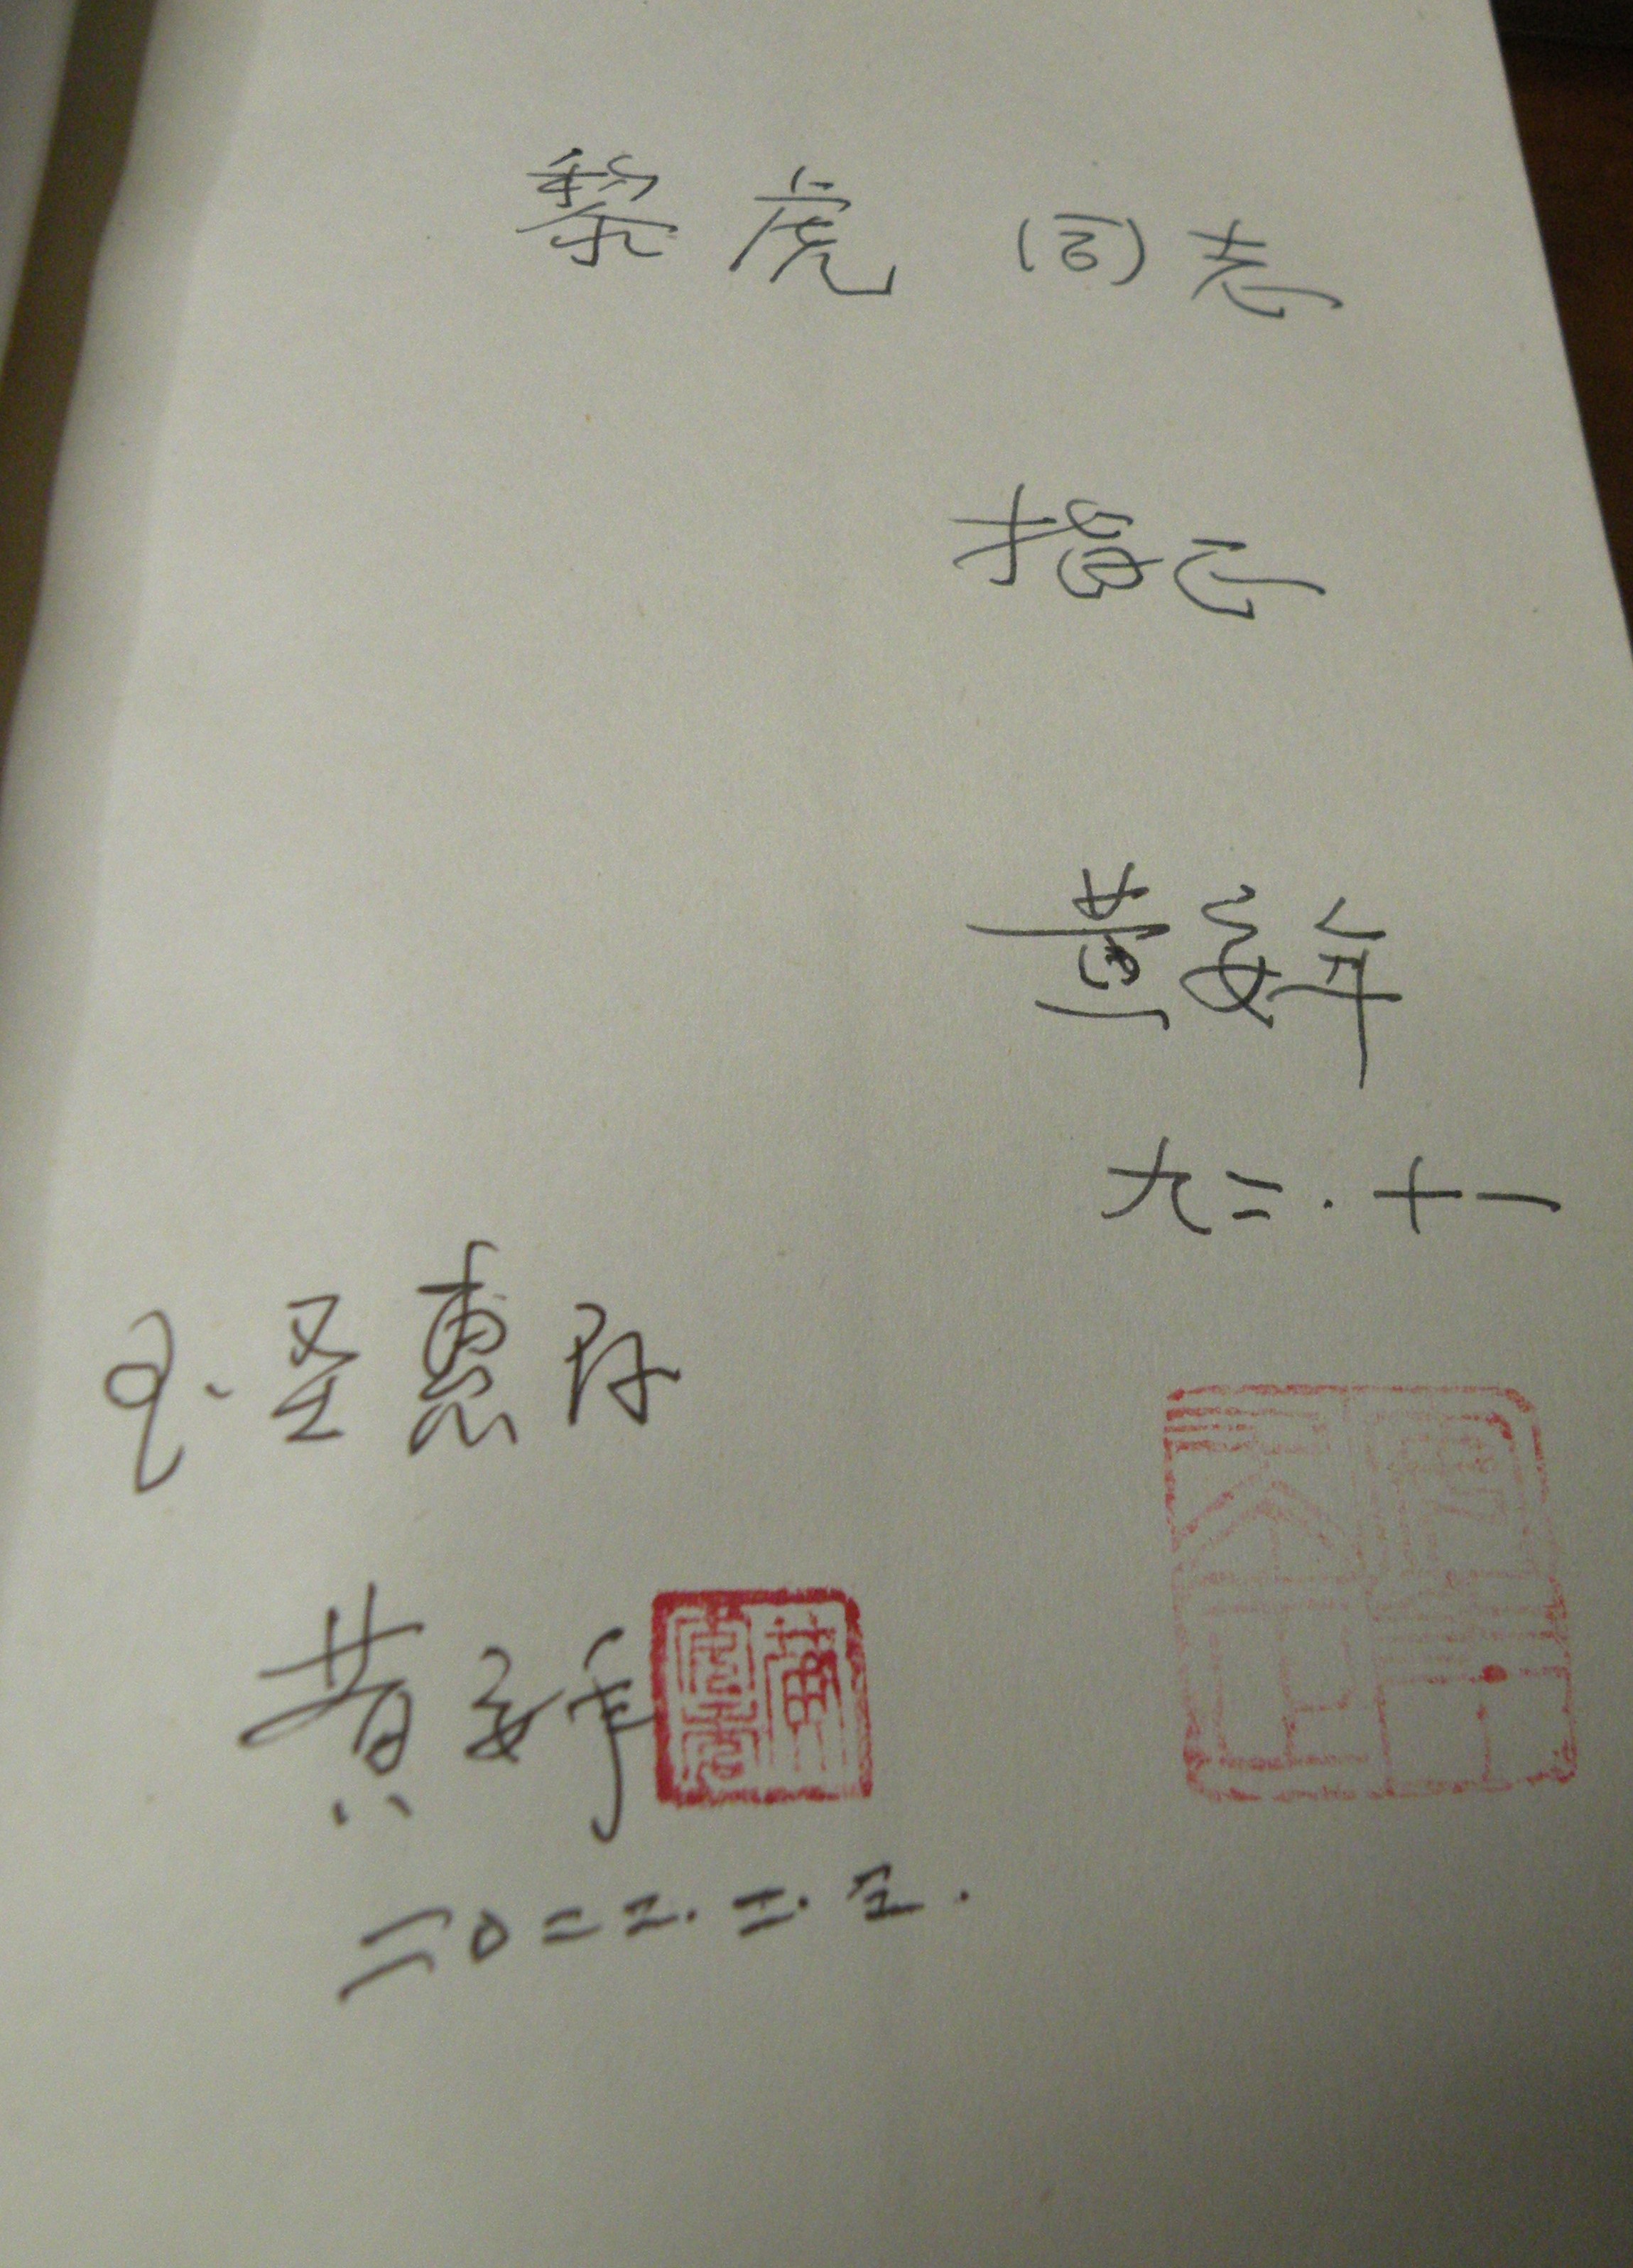 黎虎同志
指正
黄安年
九二.十一
圣惠存
黄安年
二〇一二.二.五.